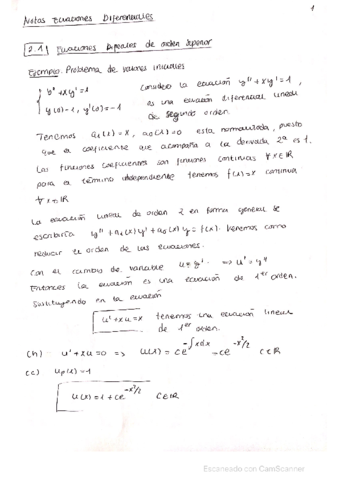 1
Notas Ecuaciones Diferenciales
2.1 Ecuaciones lineales de orden superior
Ejemplo. Problema de valores iniciales
y''+xy'=1
y(0)=1, y'(0)=-1
Considero la ecuación y''+xy'=1,
es una ecuación diferencial lineal
de segundo orden.
Tenemos a₁(x)=x, a₀(x)=0 esta normalizada, puesto
que el coeficiente que acompaña a la derivada 2ª es 1.
Las funciones coeficientes son funciones continuas ∀x∈ℝ
para el término independiente tenemos f(x)=x continua
∀x∈ℝ
La ecuación lineal de orden 2 en forma general se
escribiría y''+a₁(x)y'+a₀(x)y=f(x). Veremos como
reducir el orden de las ecuaciones.
Con el cambio de variable u=y' => u'=y''
Entonces la ecuación es una ecuación de 1er orden.
Sustituyendo en la ecuación
u'+xu=x tenemos una ecuación lineal
de 1er orden.
(h) u'+xu=0 => u(x)=ce^{-∫xdx}=ce^{-x²/2} c∈ℝ
(c) u_p(x)=1
u(x)=1+ce^{-x²/2} c∈ℝ
Escaneado con CamScanner